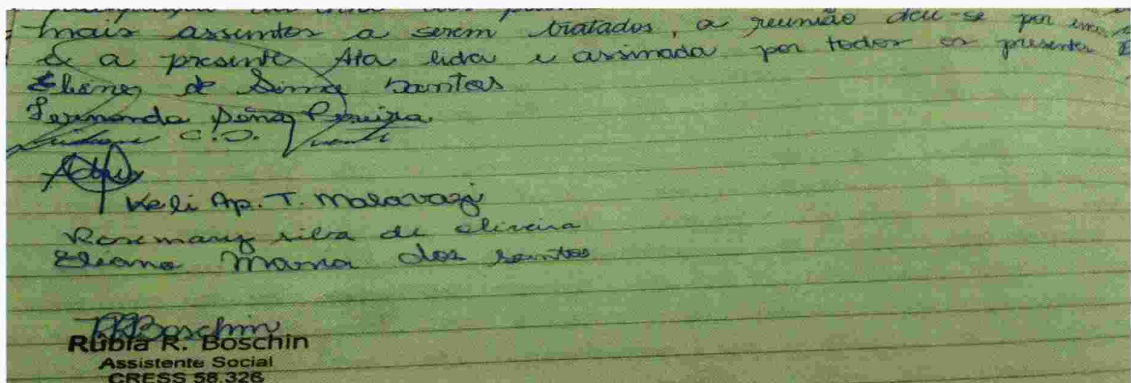 mais assuntos a serem tratados, a reunião deu-se por
e a presente Ata lida e assinada por todos os presentes
Eliane de Lima Santos
Fernanda Pereira
C.S.
Keli Ap. T. Malavazi
Rosemary silva de oliveira
Eliana Maria dos santos
RBoschin
Rúbia R. Boschin
Assistente Social
CRESS 58.326